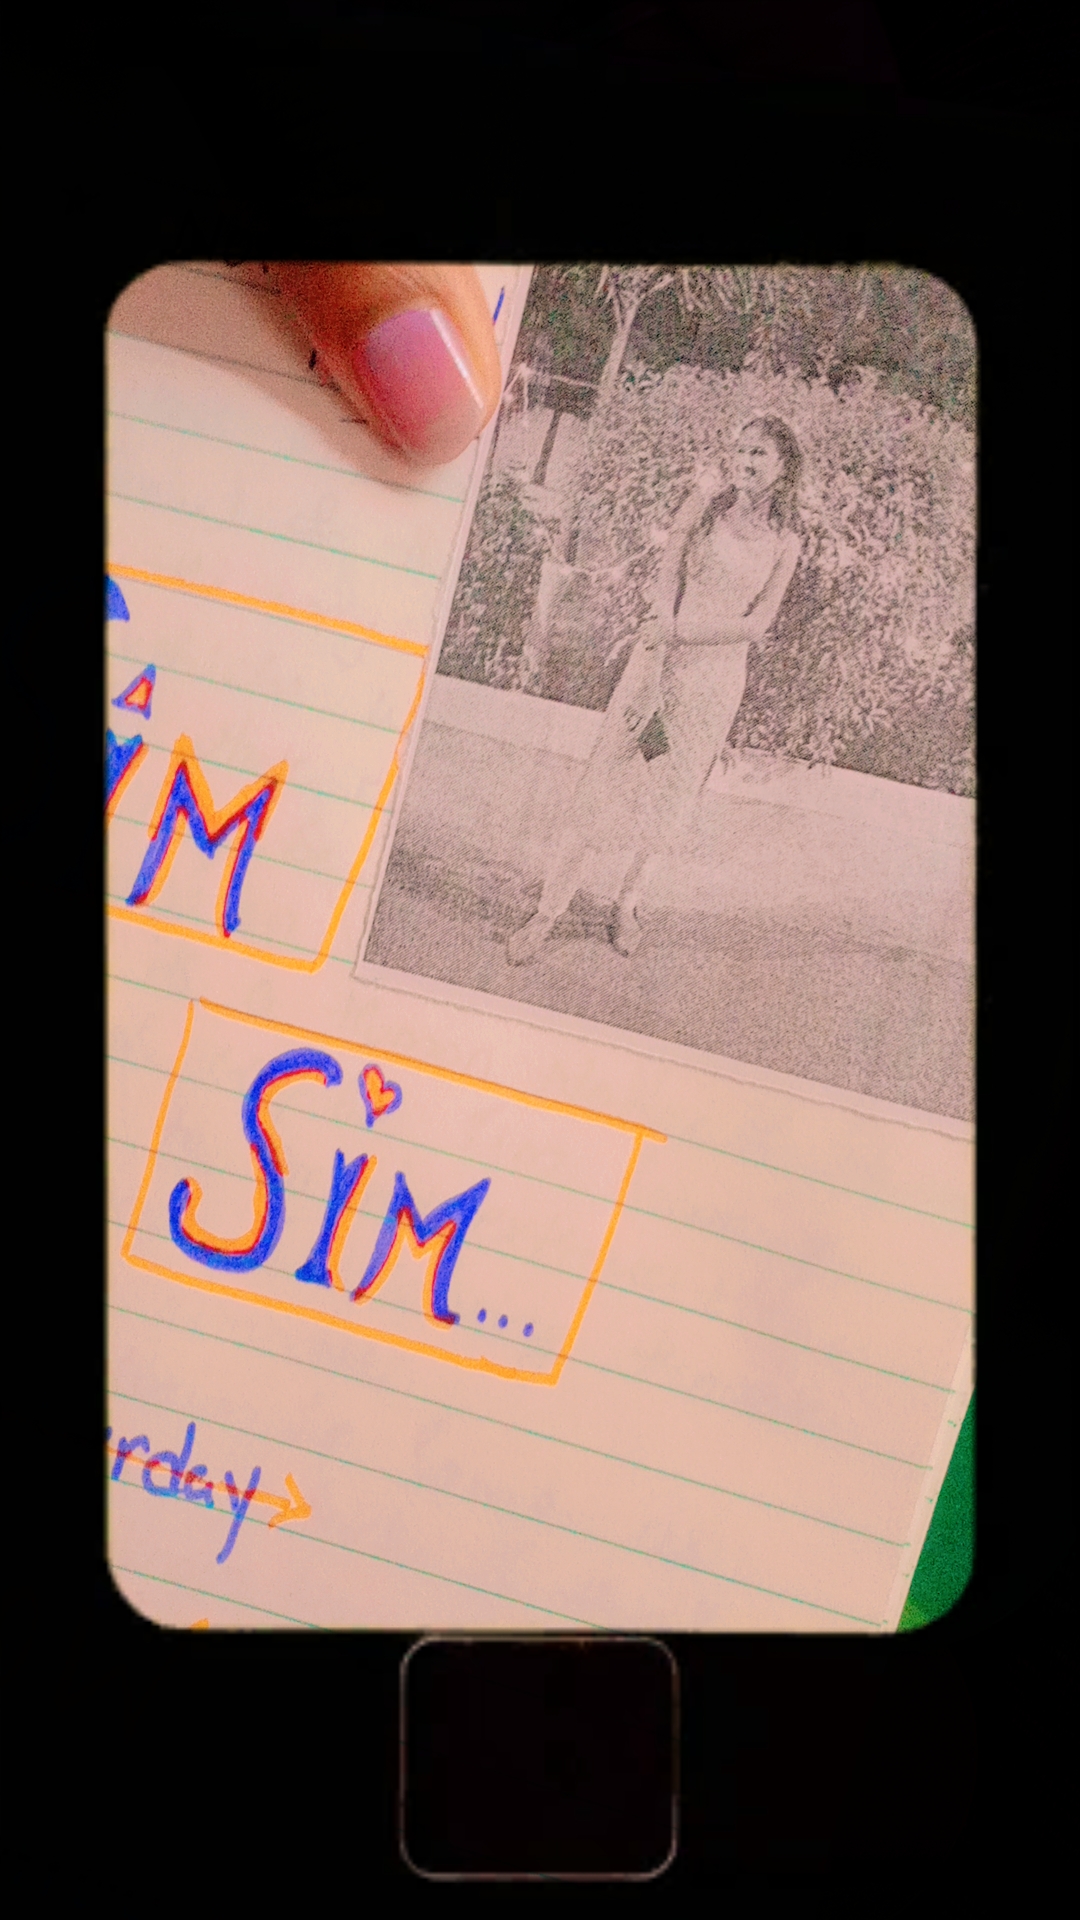 IM
SIM...
rday →